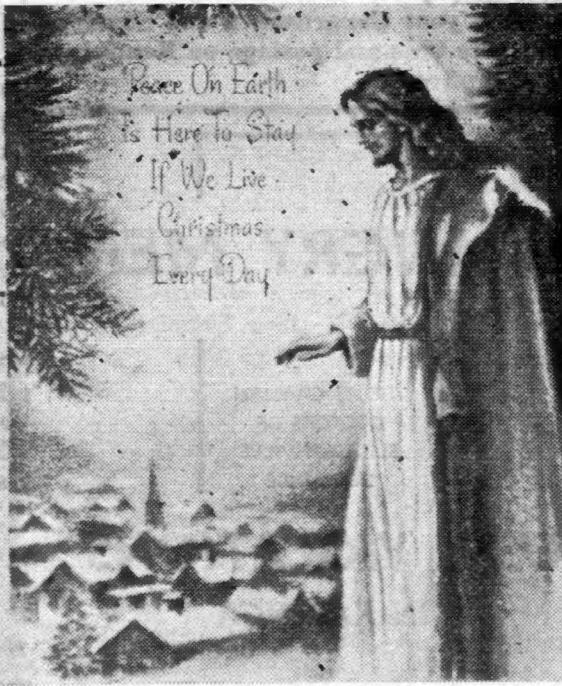 Peace On Earth
Is Here To Stay
If We Live
Christmas
Every Day